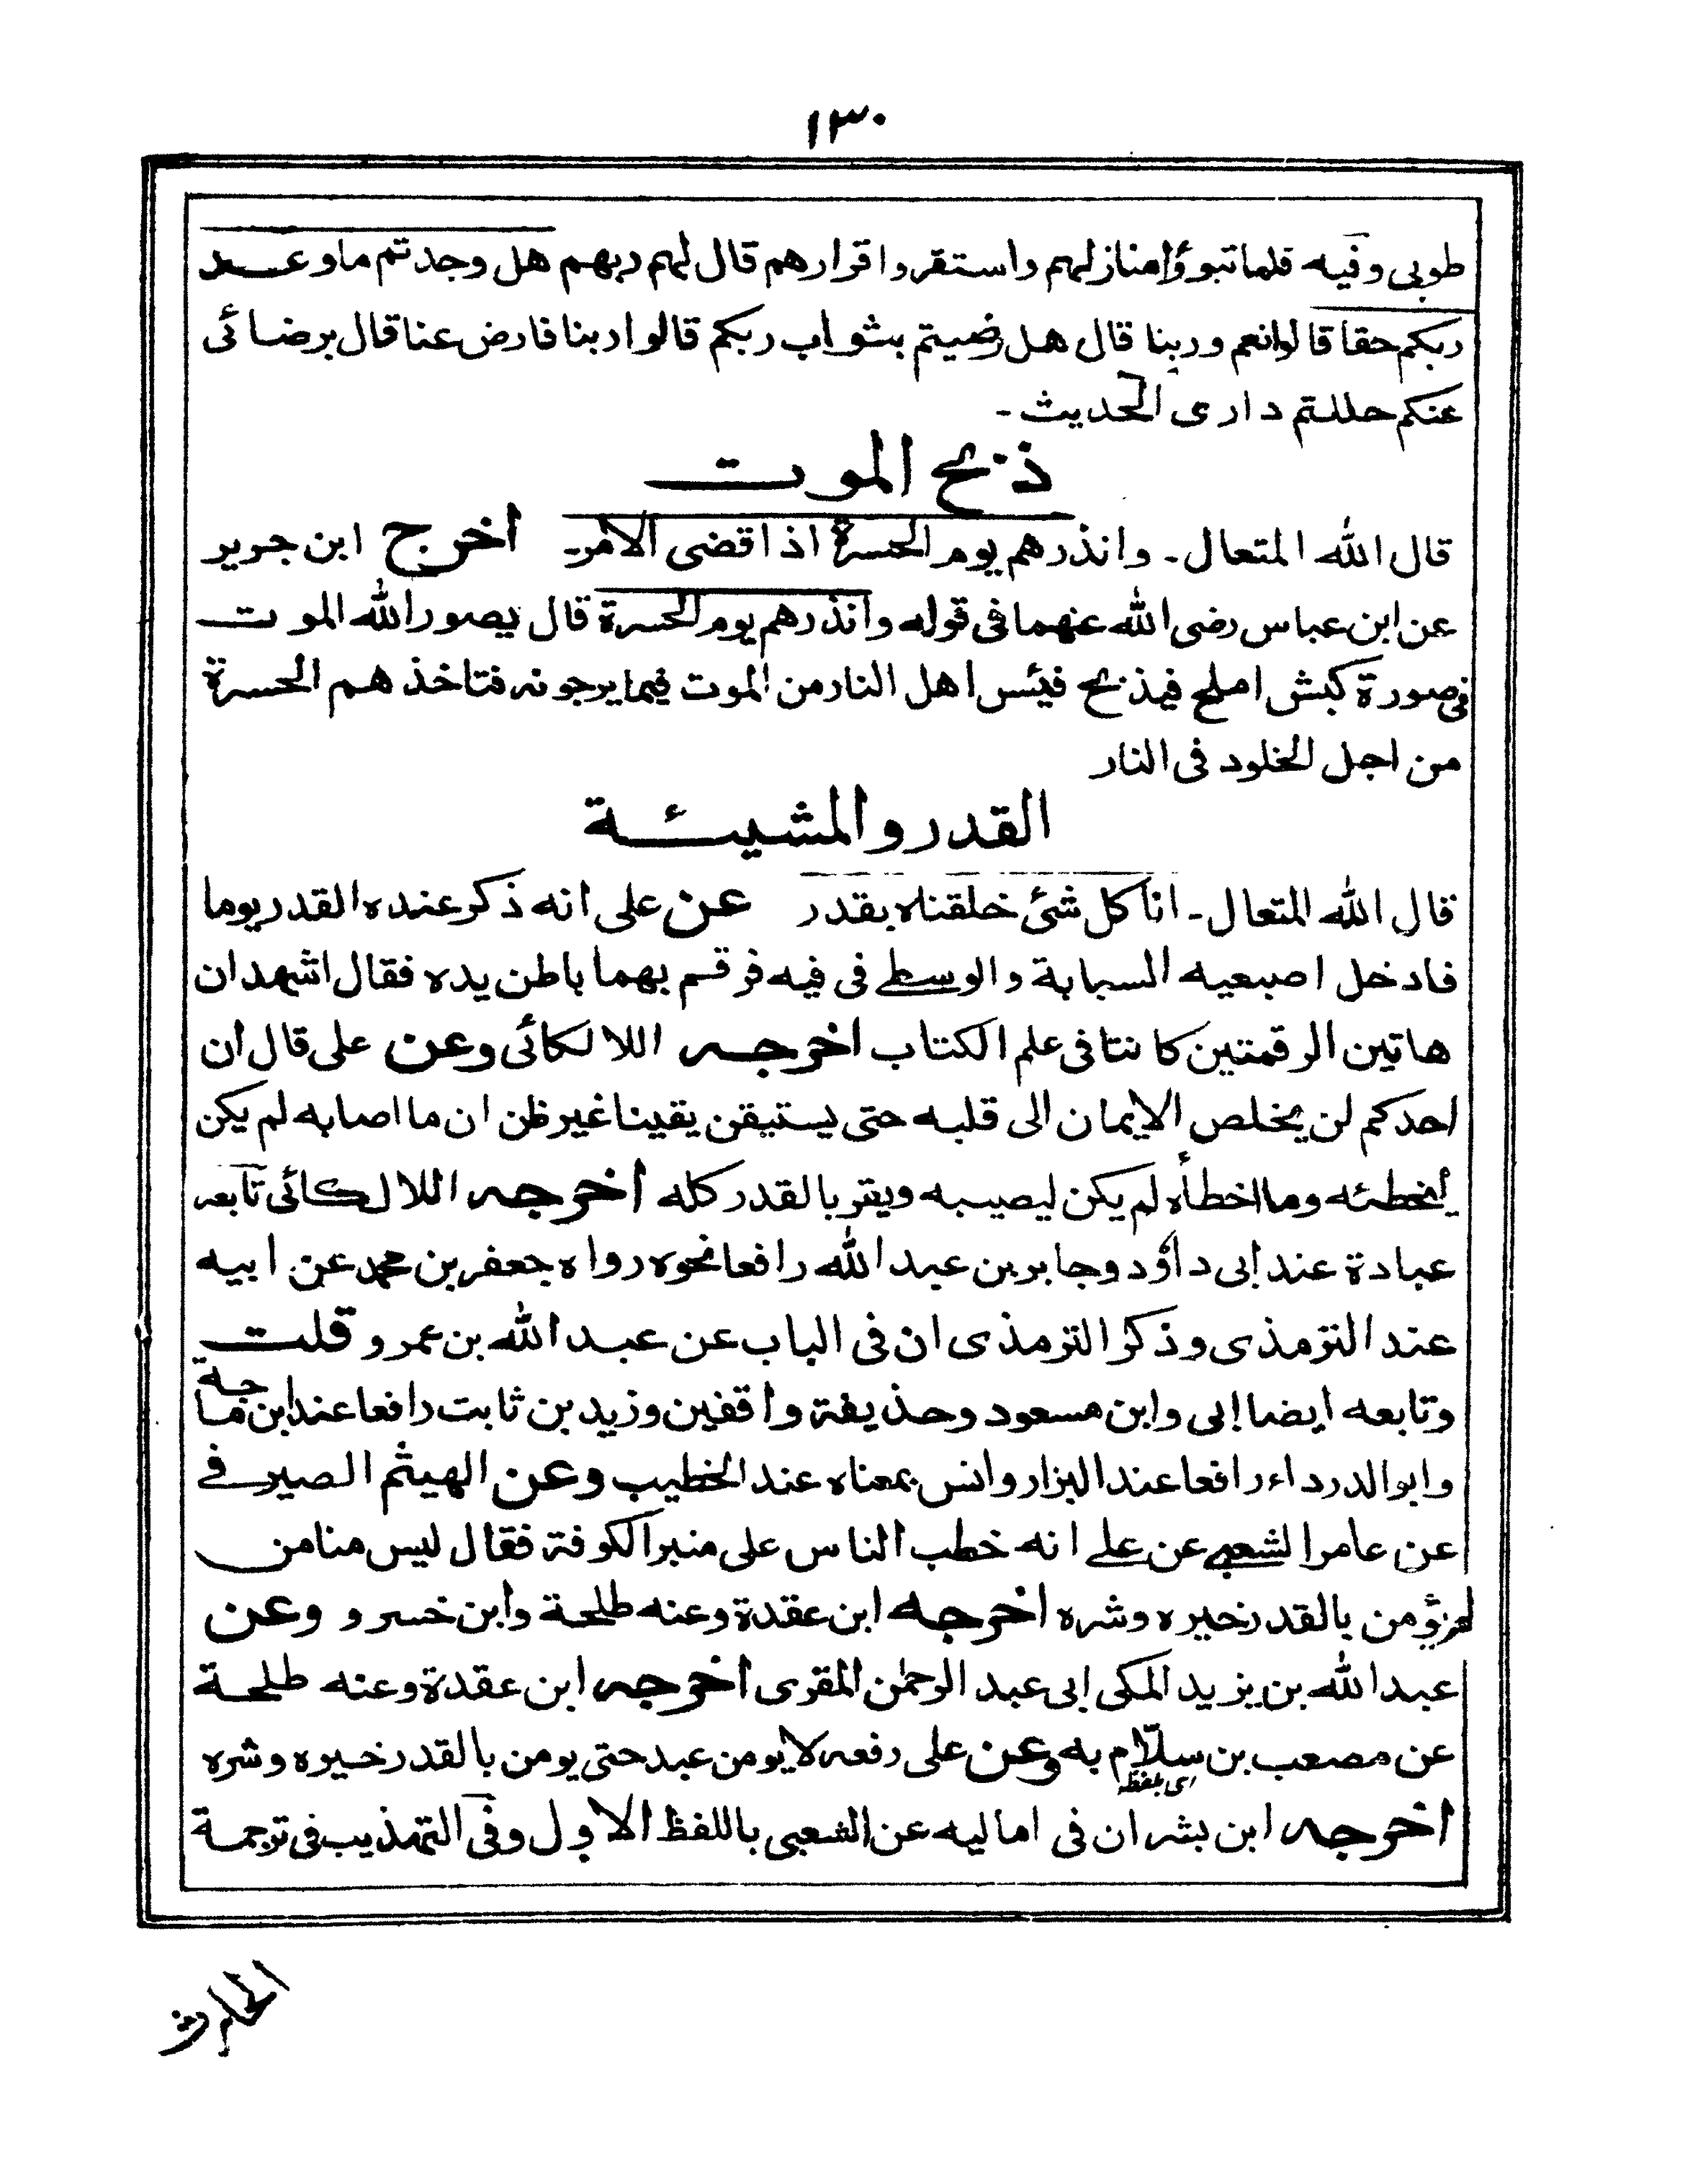 ١٣٠
طوبى وفيه فلما تبوؤا منازلهم واستقروا قرارهم قال لهم ربهم هل وجدتم ما وعد
ربكم حقا قالوا نعم وربنا قال هل رضيتم بثواب ربكم قالوا ربنا فارض عنا قال برضائى
عنكم حللتم دارى الحديث ـ
ذبح الموت
قال الله المتعال ـ وانذرهم يوم الحسرة اذا قضى الامر ـ اخرج ابن جرير
عن ابن عباس رضى الله عنهما فى قوله وانذرهم يوم الحسرة قال يصور الله الموت
فى صورة كبش املح فيذبح فيئس اهل النار من الموت فيما يرجونه فتاخذ هم الحسرة
من اجل الخلود فى النار
القدر والمشيئة
قال الله المتعال ـ انا كل شئ خلقناه بقدر عن على انه ذكر عنده القدر يوما
فادخل اصبعيه السبابة والوسطے فى فيه فرقم بهما باطن يده فقال اشهد ان
هاتين الرقمتين كانتا فى علم الكتاب اخرجه اللالكائى وعن على قال ان
احدكم لن يخلص الايمان الى قلبه حتى يستيقن يقينا غير ظن ان ما اصابه لم يكن
ليخطئه وما اخطأه لم يكن ليصيبه ويقر بالقدر كله اخرجه اللالكائى تابعه
عبادة عند ابى داؤد وجابر بن عبد الله رافعا نحوه رواه جعفر بن محمد عن ابيه
عند الترمذى وذكر الترمذى ان فى الباب عن عبد الله بن عمرو قلت
وتابعه ايضا ابى وابن مسعود وحذيفة واقفين وزيد بن ثابت رافعا عند ابن ماجة
وابو الدرداء رافعا عند البزار وانس بمعناه عند الخطيب وعن الهيثم الصيرفے
عن عامر الشعبے عن علے انه خطب الناس على منبر الكوفة فقال ليس منا من
لم يؤمن بالقدر خيره وشره اخرجه ابن عقدة وعنه طلحة وابن خسرو وعن
عبد الله بن يزيد المكى ابى عبد الرحمٰن المقرى اخرجه ابن عقدة وعنه طلحة
عن مصعب بن سلّام به وعن على رفعه لا يومن عبد حتى يومن بالقدر خيره وشره
اى بلفظه
اخرجه ابن بشران فى اماليه عن الشعبى باللفظ الاول وفى التهذيب فى ترجمة
الحارث